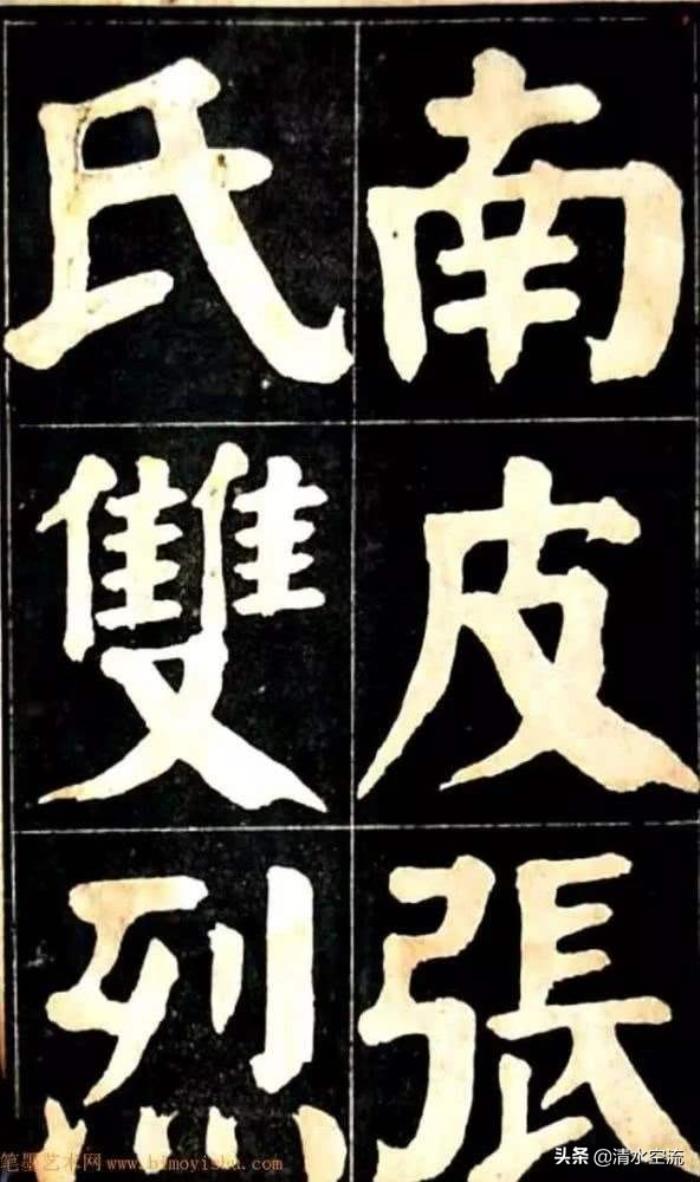 南皮張
氏雙烈
笔墨艺术网 www.bimoyishu.com
头条 @清水空流